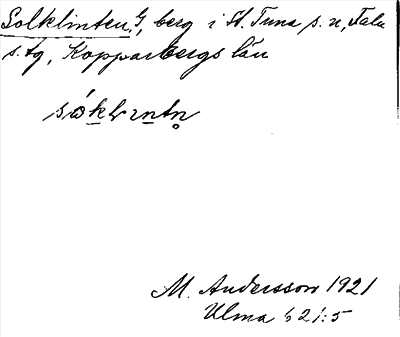 Solklinten, berg i St. Tuna s. n, Falu
s. tg, Kopparbergs län
M. Andersson 1921
Ulma 621:5